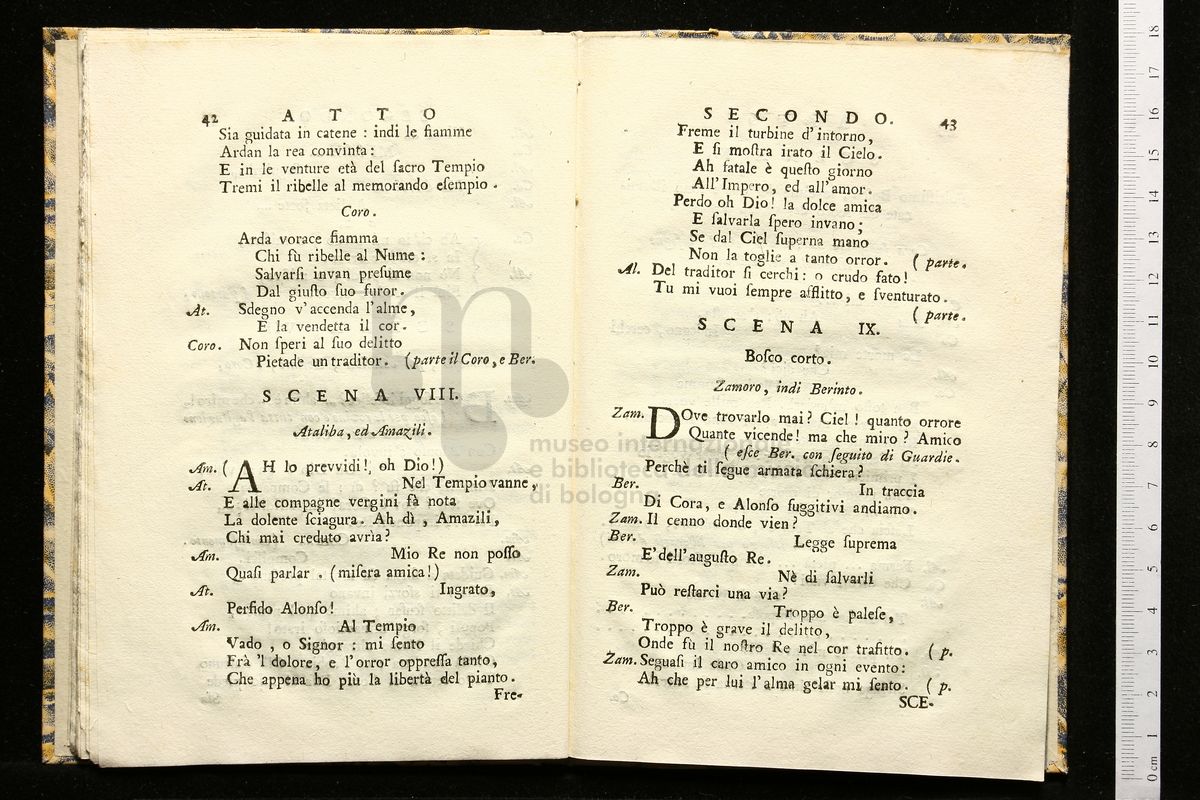 42 ATTO
Sia guidata in catene : indi le fiamme
Ardan la rea convinta :
E in le venture età del ſacro Tempio
Tremi il ribelle al memorando eſempio .
Coro .
Arda vorace fiamma
Chi fù ribelle al Nume :
Salvarſi invan preſume
Dal giuſto ſuo furor .
At. Sdegno v'accenda l'alme ,
E la vendetta il cor .
Coro. Non ſperi al ſuo delitto
Pietade un traditor . (parte il Coro , e Ber.
SCENA VIII.
Ataliba , ed Amazilì .
Am. ( AH lo prevvidi !, oh Dio !)
At. Nel Tempio vanne ,
E alle compagne vergini fà nota
La dolente ſciagura . Ah dì , Amazili ,
Chi mai creduto avrìa ?
Am. Mio Re non poſſo
Quaſi parlar . (miſera amica !)
At. Ingrato ,
Perfido Alonſo !
Am. Al Tempio
Vado , o Signor : mi ſento
Frà 'l dolore , e l'orror oppreſſa tanto ,
Che appena ho più la libertà del pianto .
Fre-
SECONDO. 43
Freme il turbine d'intorno ,
E ſi moſtra irato il Cielo .
Ah fatale è queſto giorno
All'Impero , ed all'amor .
Perdo oh Dio ! la dolce amica
E ſalvarla ſpero invano ;
Se dal Ciel ſuperna mano
Non la toglie a tanto orror . ( parte .
Al. Del traditor ſi cerchi : o crudo fato !
Tu mi vuoi ſempre afflitto , e ſventurato .
( parte .
SCENA IX.
Boſco corto .
Zamoro , indi Berinto .
Zam. DOve trovarlo mai ? Ciel ! quanto orrore
Quante vicende ! ma che miro ? Amico
( eſce Ber. con ſeguito di Guardie .
Perchè ti ſegue armata ſchiera ?
Ber. In traccia
Di Cora , e Alonſo fuggitivi andiamo .
Zam. Il cenno donde vien ?
Ber. Legge ſuprema
E' dell'auguſto Re .
Zam. Nè di ſalvarli
Può reſtarci una via ?
Ber. Troppo è paleſe ,
Troppo è grave il delitto ,
Onde fù il noſtro Re nel cor trafitto . ( p.
Zam. Seguaſi il caro amico in ogni evento :
Ah che per lui l'alma gelar mi ſento . ( p.
SCE-
museo internazionale
e biblioteca della musica
di bologna
0 cm 1 2 3 4 5 6 7 8 9 10 11 12 13 14 15 16 17 18